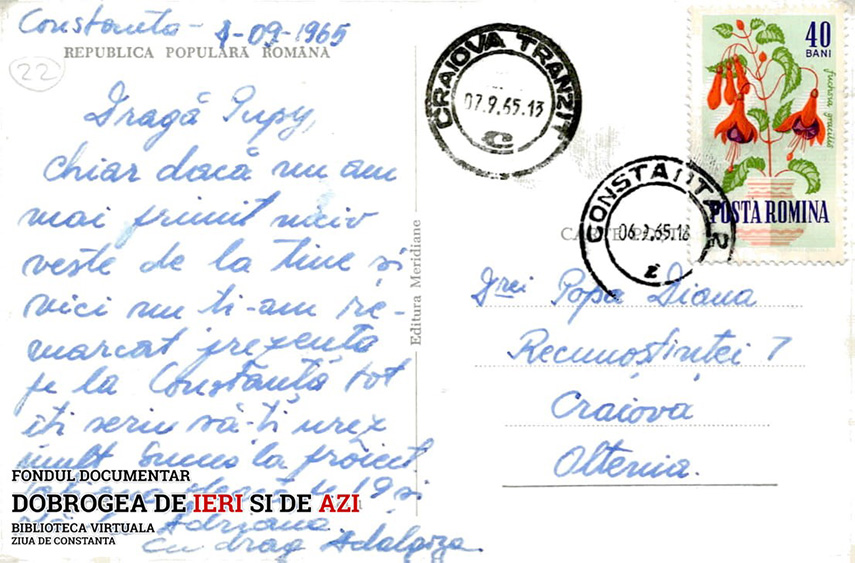 Constanta - 1-09-1965
REPUBLICA POPULARĂ ROMÂNĂ
22
Dragă Pupy,
chiar dacă nu am
mai primit nicio
veste de la tine și
nici nu ti-am re-
marcat prezenta
pe la Constanță tot
îți scriu să-ți urez
mult succes la proiect
19 și
Adriana.
cu drag Adalgiza.
FONDUL DOCUMENTAR
DOBROGEA DE IERI SI DE AZI
BIBLIOTECA VIRTUALA
ZIUA DE CONSTANTA
Editura Meridiane
CRAIOVA TRANZIT
07.9.65.13
C
CONSTANTA 2
06.9.65.18
i
40
BANI
fuchsia gracilis
POSTA ROMINA
CARTE POȘTALĂ
Drei Popa Diana
Recunoștinței 7
Craiova
Oltenia.